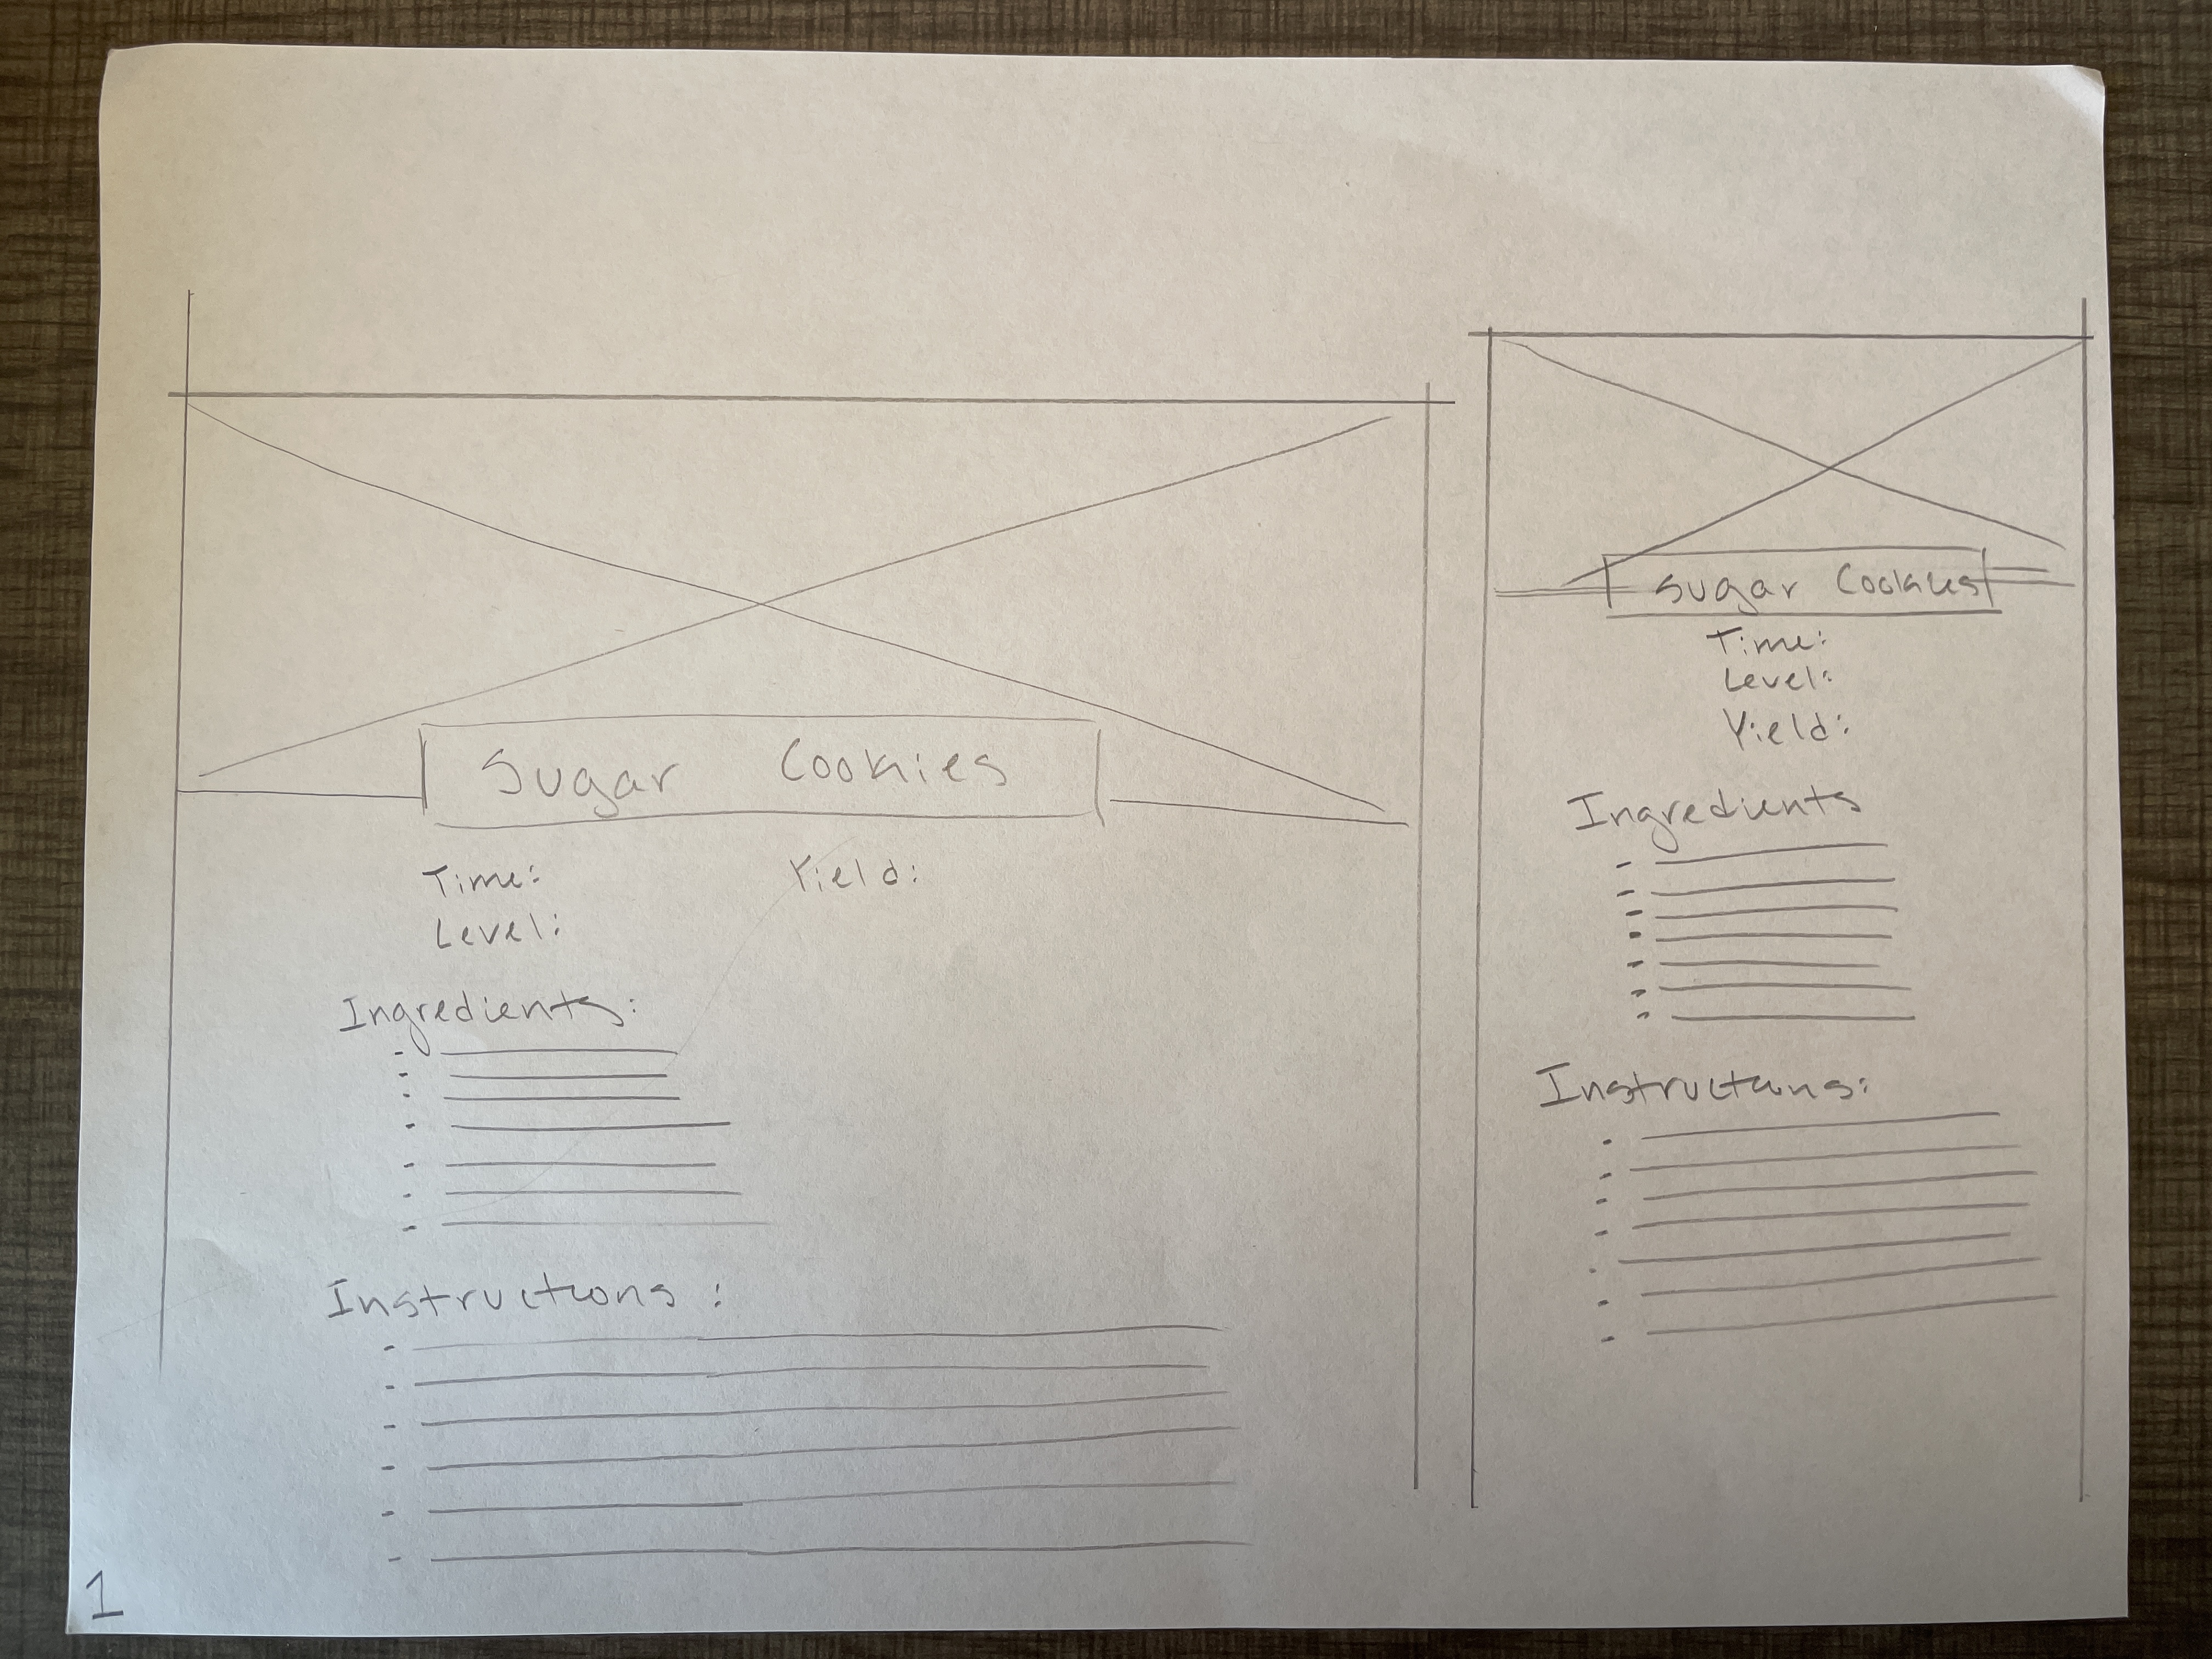 Sugar Cookies
Time: Yield:
Level:
Ingredients:
Instructions:
Sugar Cookies
Time:
Level:
Yield:
Ingredients
Instructions:
1